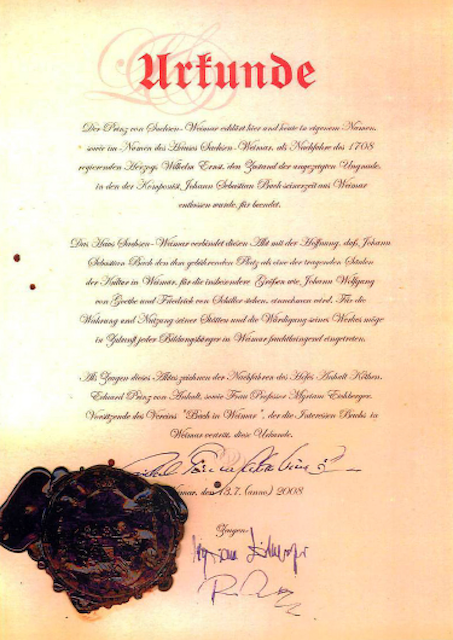 Urkunde
Der Prinz von Sachsen-Weimar erklärt hier und heute in eigenem Namen,
sowie im Namen des Hauses Sachsen-Weimar, als Nachfahre des 1708
regierenden Herzogs Wilhelm Ernst, den Zustand der angezeigten Ungnade,
in den der Komponist Johann Sebastian Bach seinerzeit aus Weimar
entlassen wurde, für beendet.
Das Haus Sachsen-Weimar verbindet diesen Akt mit der Hoffnung, daß Johann
Sebastian Bach den ihm gebührenden Platz als eine der tragenden Säulen
der Kultur in Weimar, für die insbesondere Größen wie Johann Wolfgang
von Goethe und Friedrich von Schiller stehen, einnehmen wird. Für die
Wahrung und Nutzung seiner Stätten und die Würdigung seines Werkes möge
in Zukunft jeder Bildungsbürger in Weimar fruchtbringend eingetreten.
Als Zeugen dieses Aktes zeichnen der Nachfahren des Hofes Anhalt Köthen,
Eduard Prinz von Anhalt, sowie Frau Professor Myriam Eichberger,
Vorsitzende des Vereins "Bach in Weimar", der die Interessen Bachs in
Weimar vertritt, diese Urkunde.
Weimar, den 13.7. (anno) 2008
Zeugen